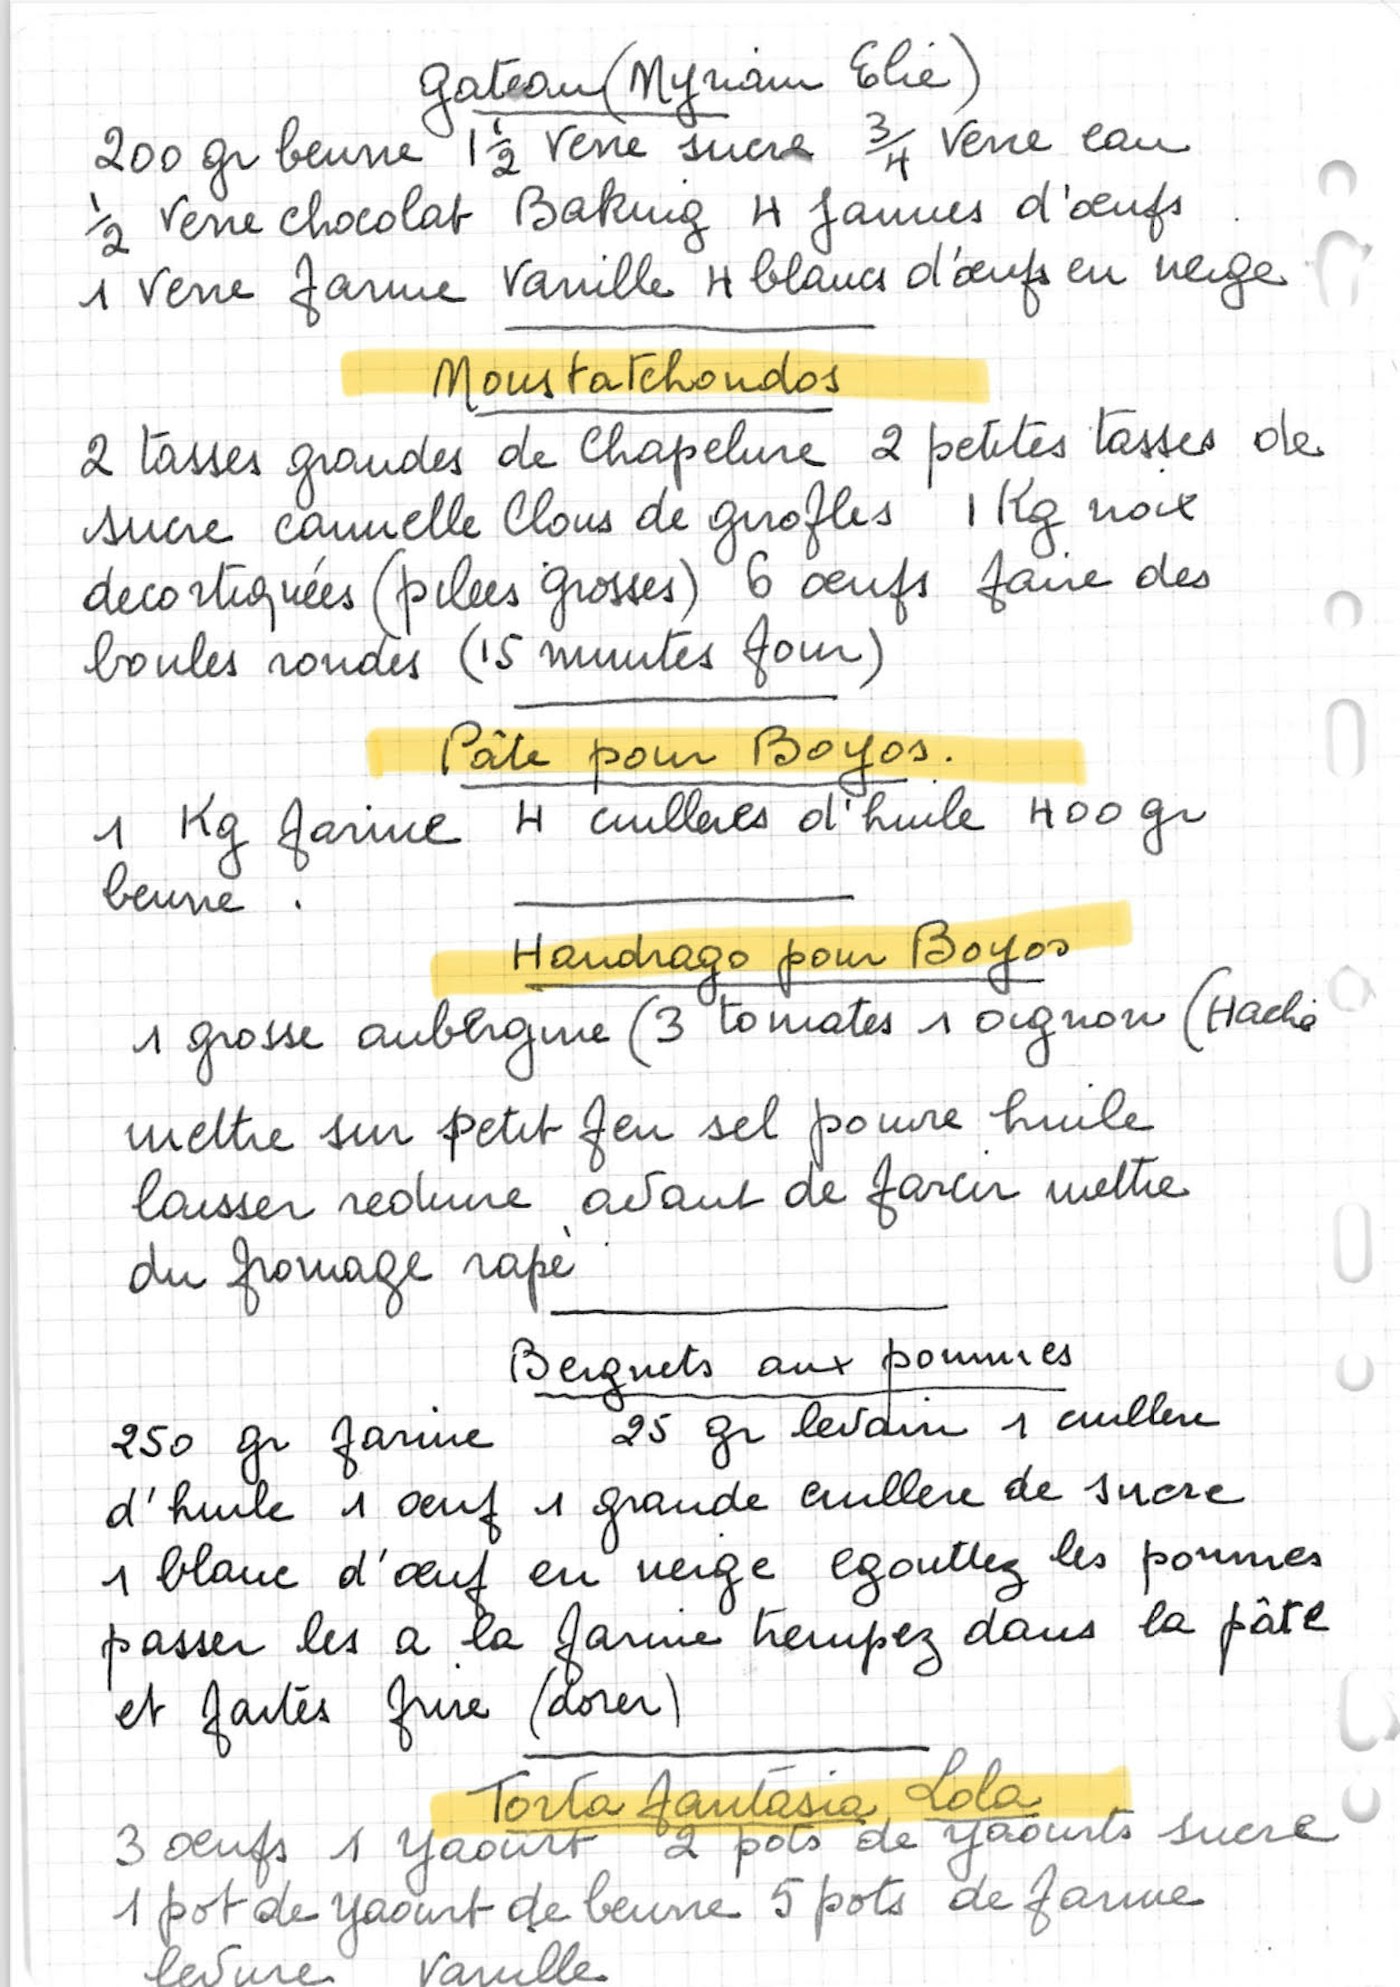 Gateau (Myriam Elie)
200 gr beurre 1 1/2 verre sucre 3/4 verre eau
1/2 verre chocolat Baking 4 jaunes d'œufs
1 verre farine vanille 4 blancs d'œufs en neige
Moustatchoudos
2 tasses grandes de chapelure 2 petites tasses de
sucre cannelle Clous de girofles 1 Kg noix
decortiquées (pilees grosses) 6 œufs faire des
boules rondes (15 minutes four)
Pâte pour Boyos.
1 Kg farine 4 cuilleres d'huile 400 gr
beurre .
Handrago pour Boyos
1 grosse aubergine (3 tomates 1 oignon (Haché
mettre sur petit feu sel poivre huile
laisser reduire avant de farcir mettre
du fromage rapè
Beignets aux pommes
250 gr farine 25 gr levain 1 cuillere
d'huile 1 œuf 1 grande cuillere de sucre
1 blanc d'œuf en neige egouttez les pommes
passer les a la farine trempez dans la pâte
et faites frire (dorer)
Torta fantasia Lola
3 œufs 1 yaourt 2 pots de yaourts sucre
1 pot de yaourt de beurre 5 pots de farine
levure vanille